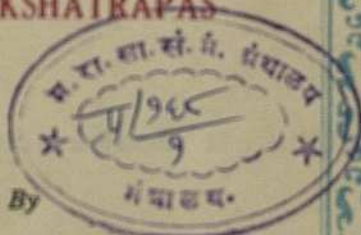 KSHATRAPAS
म. रा. सा. सं. मं. ग्रंथालय
प/१६८
१
ग्रंथालय.
By